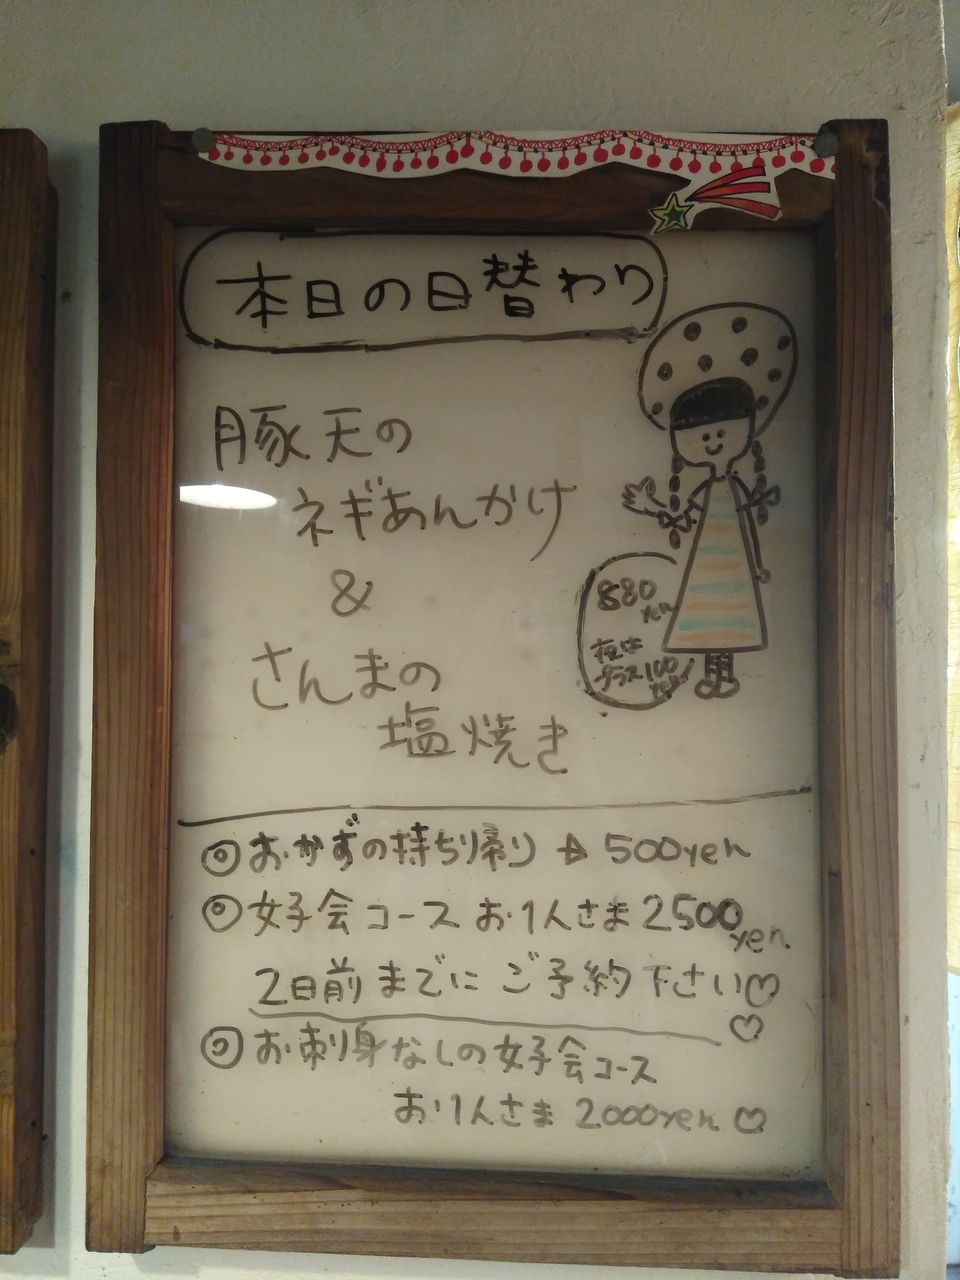 本日の日替わり
豚天の
ネギあんかけ
&
さんまの
塩焼き
880
yen
夜は
プラス100
yen
◎おかずの持ち帰り→500yen
◎女子会コース お1人さま2500
yen
2日前までにご予約下さい♡
♡
◎お刺身なしの女子会コース
お1人さま2000yen♡